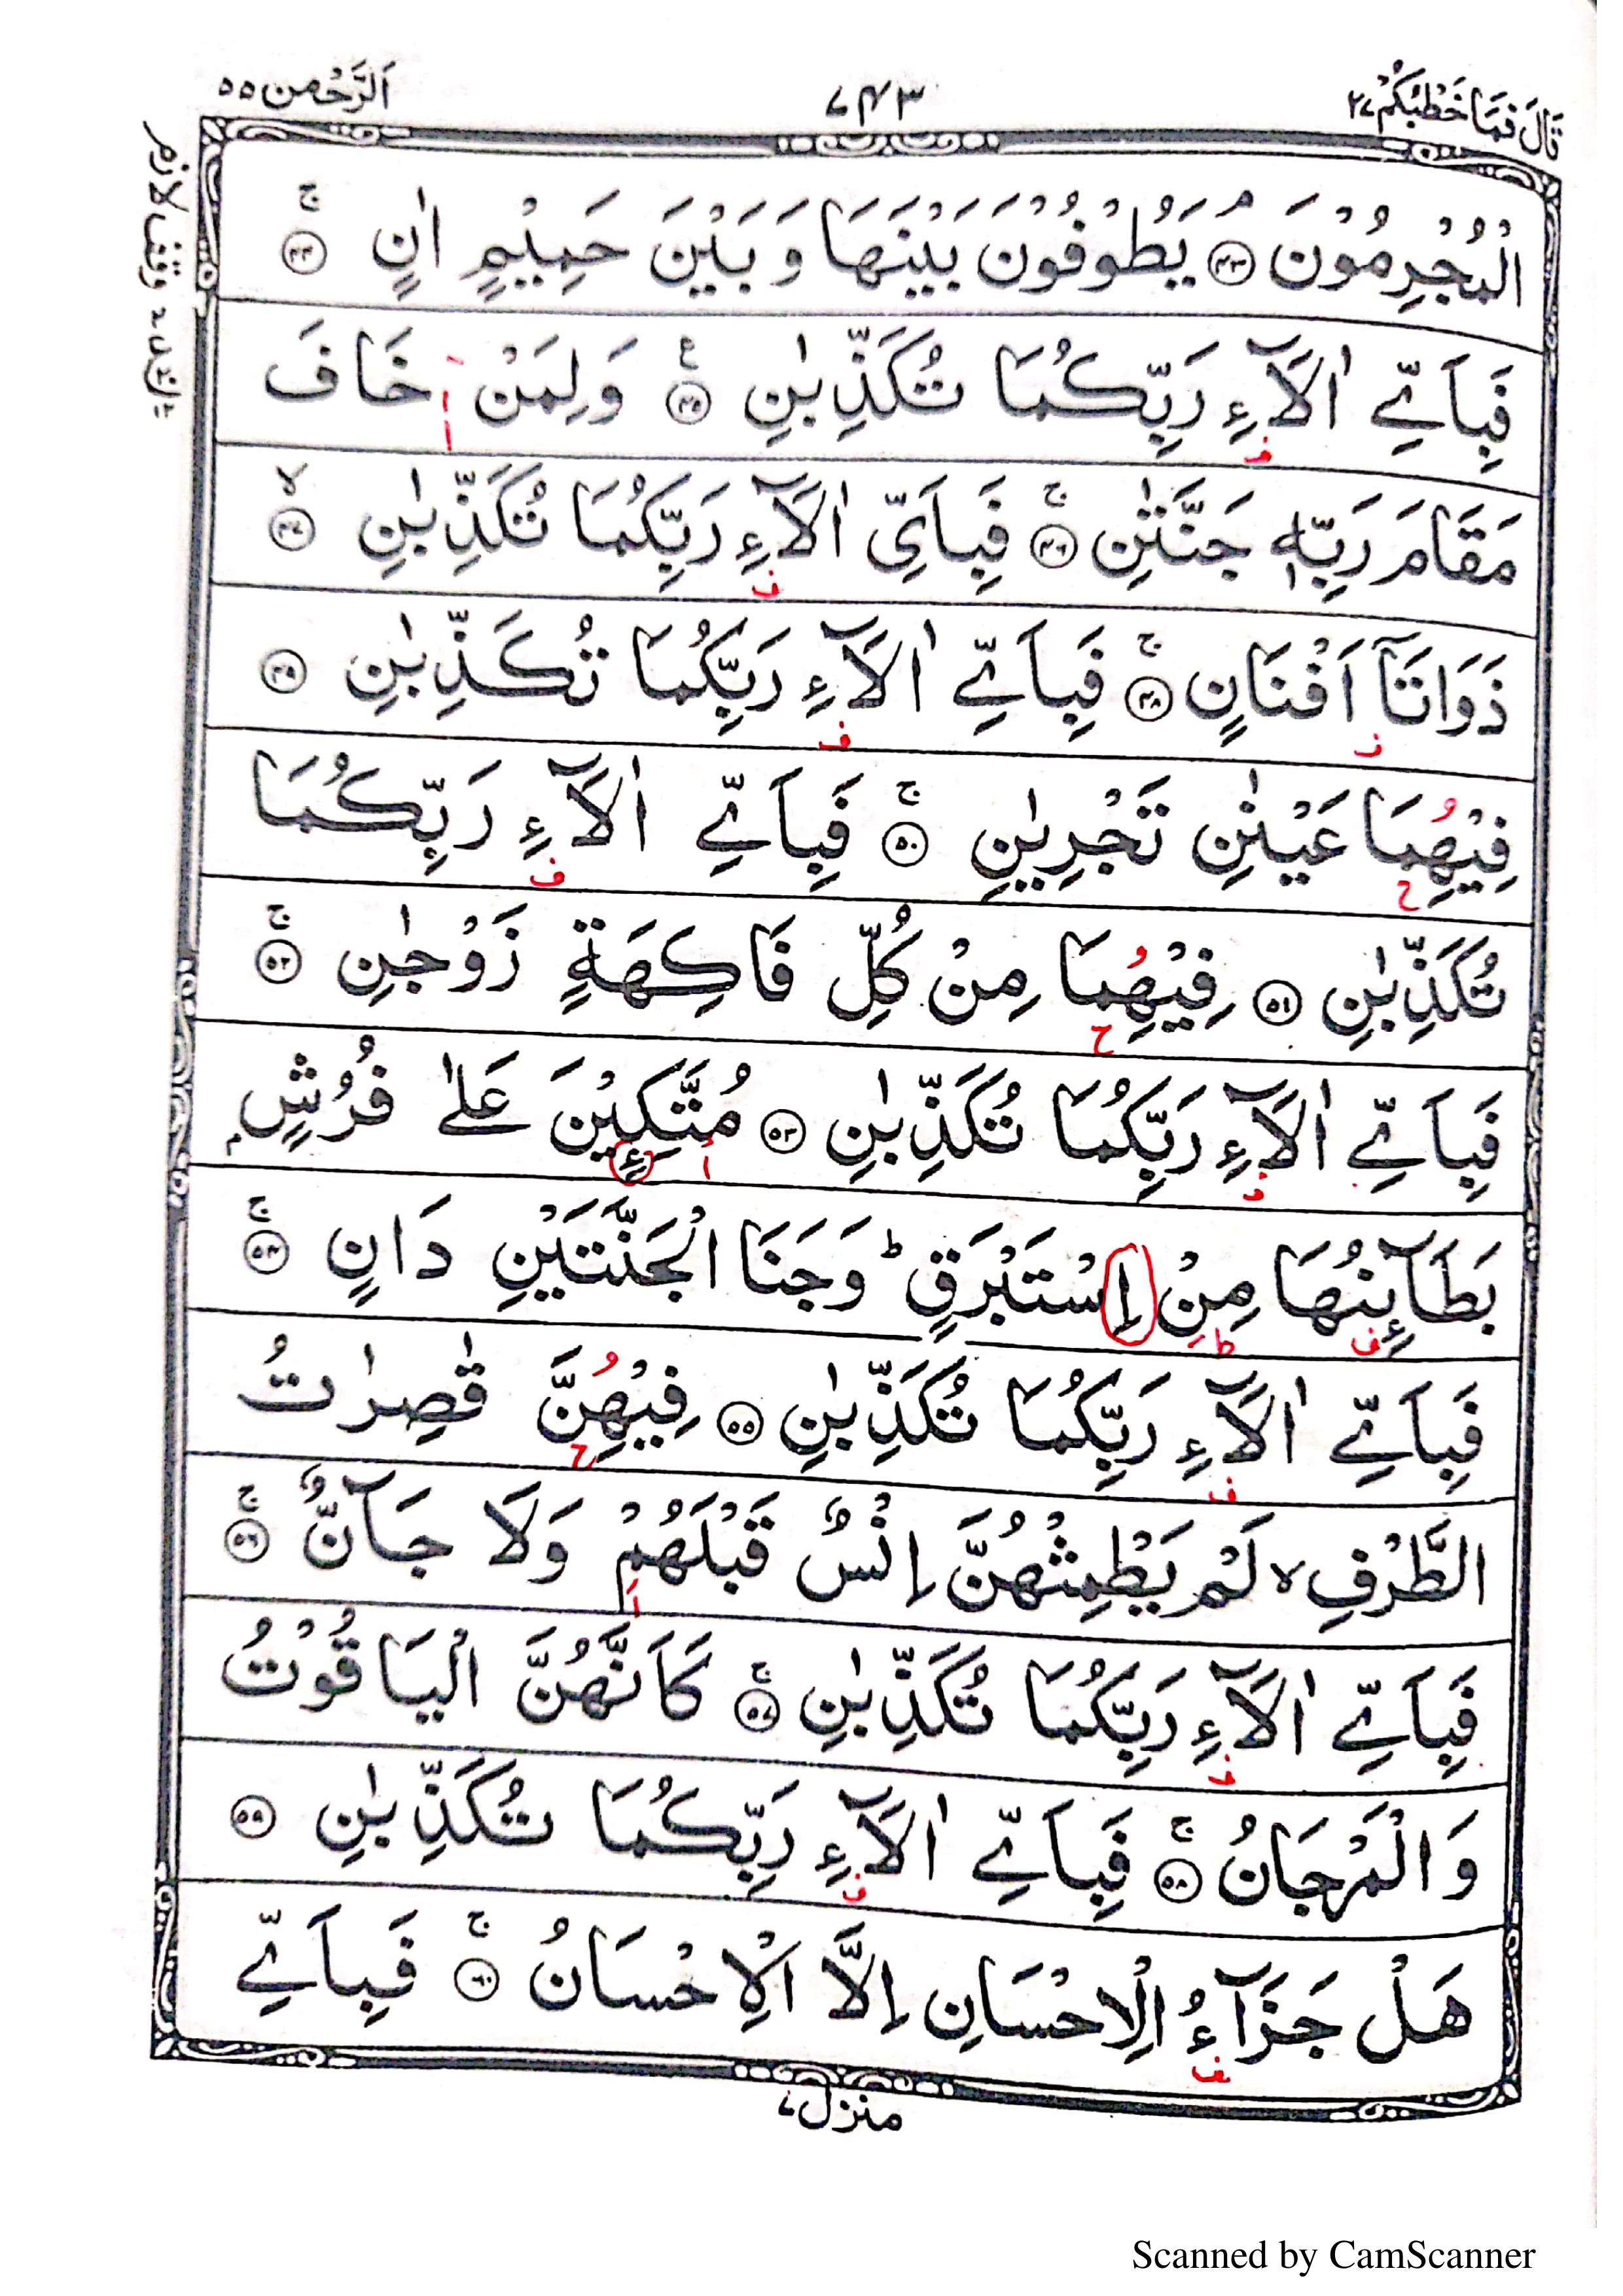 قَالَ فَمَا خَطْبُكُمْ ۲۷
۷۴۳
اَلرَّحْمٰن ۵۵
الْمُجْرِمُوْنَ ۝۴۳ يَطُوْفُوْنَ بَيْنَهَا وَ بَيْنَ حَمِيْمٍ اٰنٍ ۚ۝۴۴
فَبِاَيِّ اٰلَآءِ رَبِّكُمَا تُكَذِّبٰنِ ۧ۝۴۵ وَلِمَنْ خَافَ
مَقَامَ رَبِّهٖ جَنَّتٰنِ ۚ۝۴۶ فَبِاَيِّ اٰلَآءِ رَبِّكُمَا تُكَذِّبٰنِ ۙ۝۴۷
ذَوَاتَآ اَفْنَانٍ ۚ۝۴۸ فَبِاَيِّ اٰلَآءِ رَبِّكُمَا تُكَذِّبٰنِ ۝۴۹
فِيْهِمَا عَيْنٰنِ تَجْرِيٰنِ ۚ۝۵۰ فَبِاَيِّ اٰلَآءِ رَبِّكُمَا
تُكَذِّبٰنِ ۝۵۱ فِيْهِمَا مِنْ كُلِّ فَاكِهَةٍ زَوْجٰنِ ۚ۝۵۲
فَبِاَيِّ اٰلَآءِ رَبِّكُمَا تُكَذِّبٰنِ ۝۵۳ مُتَّكِـِٕيْنَ عَلٰى فُرُشٍۭ
بَطَآىِٕنُهَا مِنْ اِسْتَبْرَقٍ ؕ وَجَنَا الْجَنَّتَيْنِ دَانٍ ۚ۝۵۴
فَبِاَيِّ اٰلَآءِ رَبِّكُمَا تُكَذِّبٰنِ ۝۵۵ فِيْهِنَّ قٰصِرٰتُ
الطَّرْفِ ۙ لَمْ يَطْمِثْهُنَّ اِنْسٌ قَبْلَهُمْ وَلَا جَآنٌّ ۚ۝۵۶
فَبِاَيِّ اٰلَآءِ رَبِّكُمَا تُكَذِّبٰنِ ۚ۝۵۷ كَاَنَّهُنَّ الْيَاقُوْتُ
وَالْمَرْجَانُ ۚ۝۵۸ فَبِاَيِّ اٰلَآءِ رَبِّكُمَا تُكَذِّبٰنِ ۝۵۹
هَلْ جَزَآءُ الْاِحْسَانِ اِلَّا الْاِحْسَانُ ۚ۝۶۰ فَبِاَيِّ
منزل ۷
Scanned by CamScanner